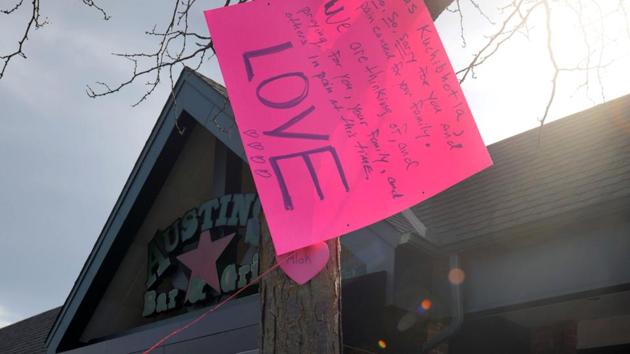 Kuchibhotla,
So Sorry for you and
pain caused for your family.
We are thinking of, and
praying for you, your family, and
others in pain at this time.
LOVE
Alok
AUSTINS
Bar & Gri